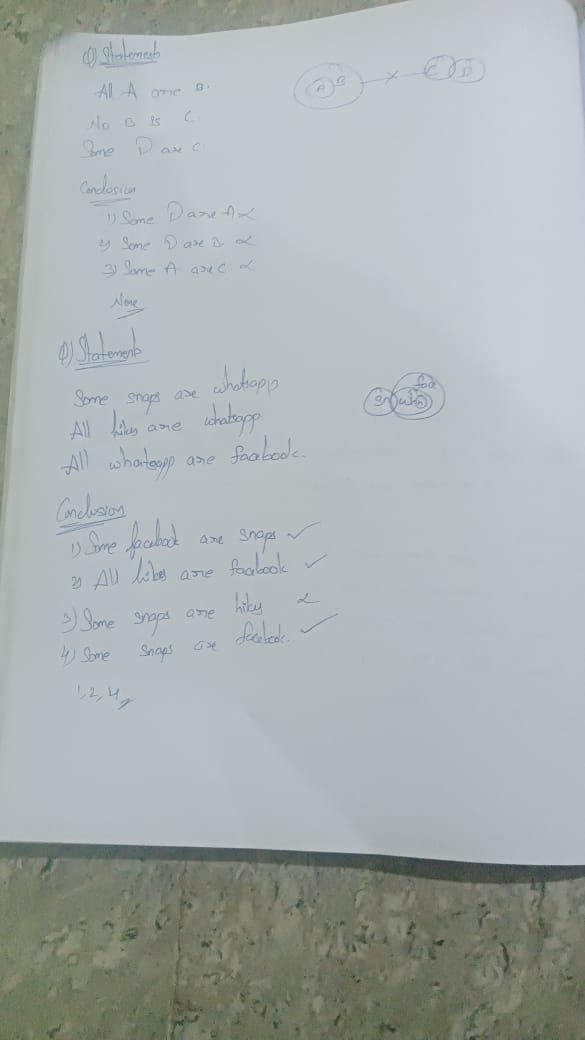 Q) Statements
All A are B.
No B is C.
Some D are C.
A B C D
Conclusion
1) Some D are A
2) Some D are B
3) Some A are C
None
Q) Statements
Some snaps are whatsapp
All are whatsapp
All whatsapp are facebook.
Sn fac
Conclusion
1) Some facebook are snaps ✓
2) All are facebook ✓
3) Some snaps are
4) Some snaps are facebook. ✓
1, 2, 4